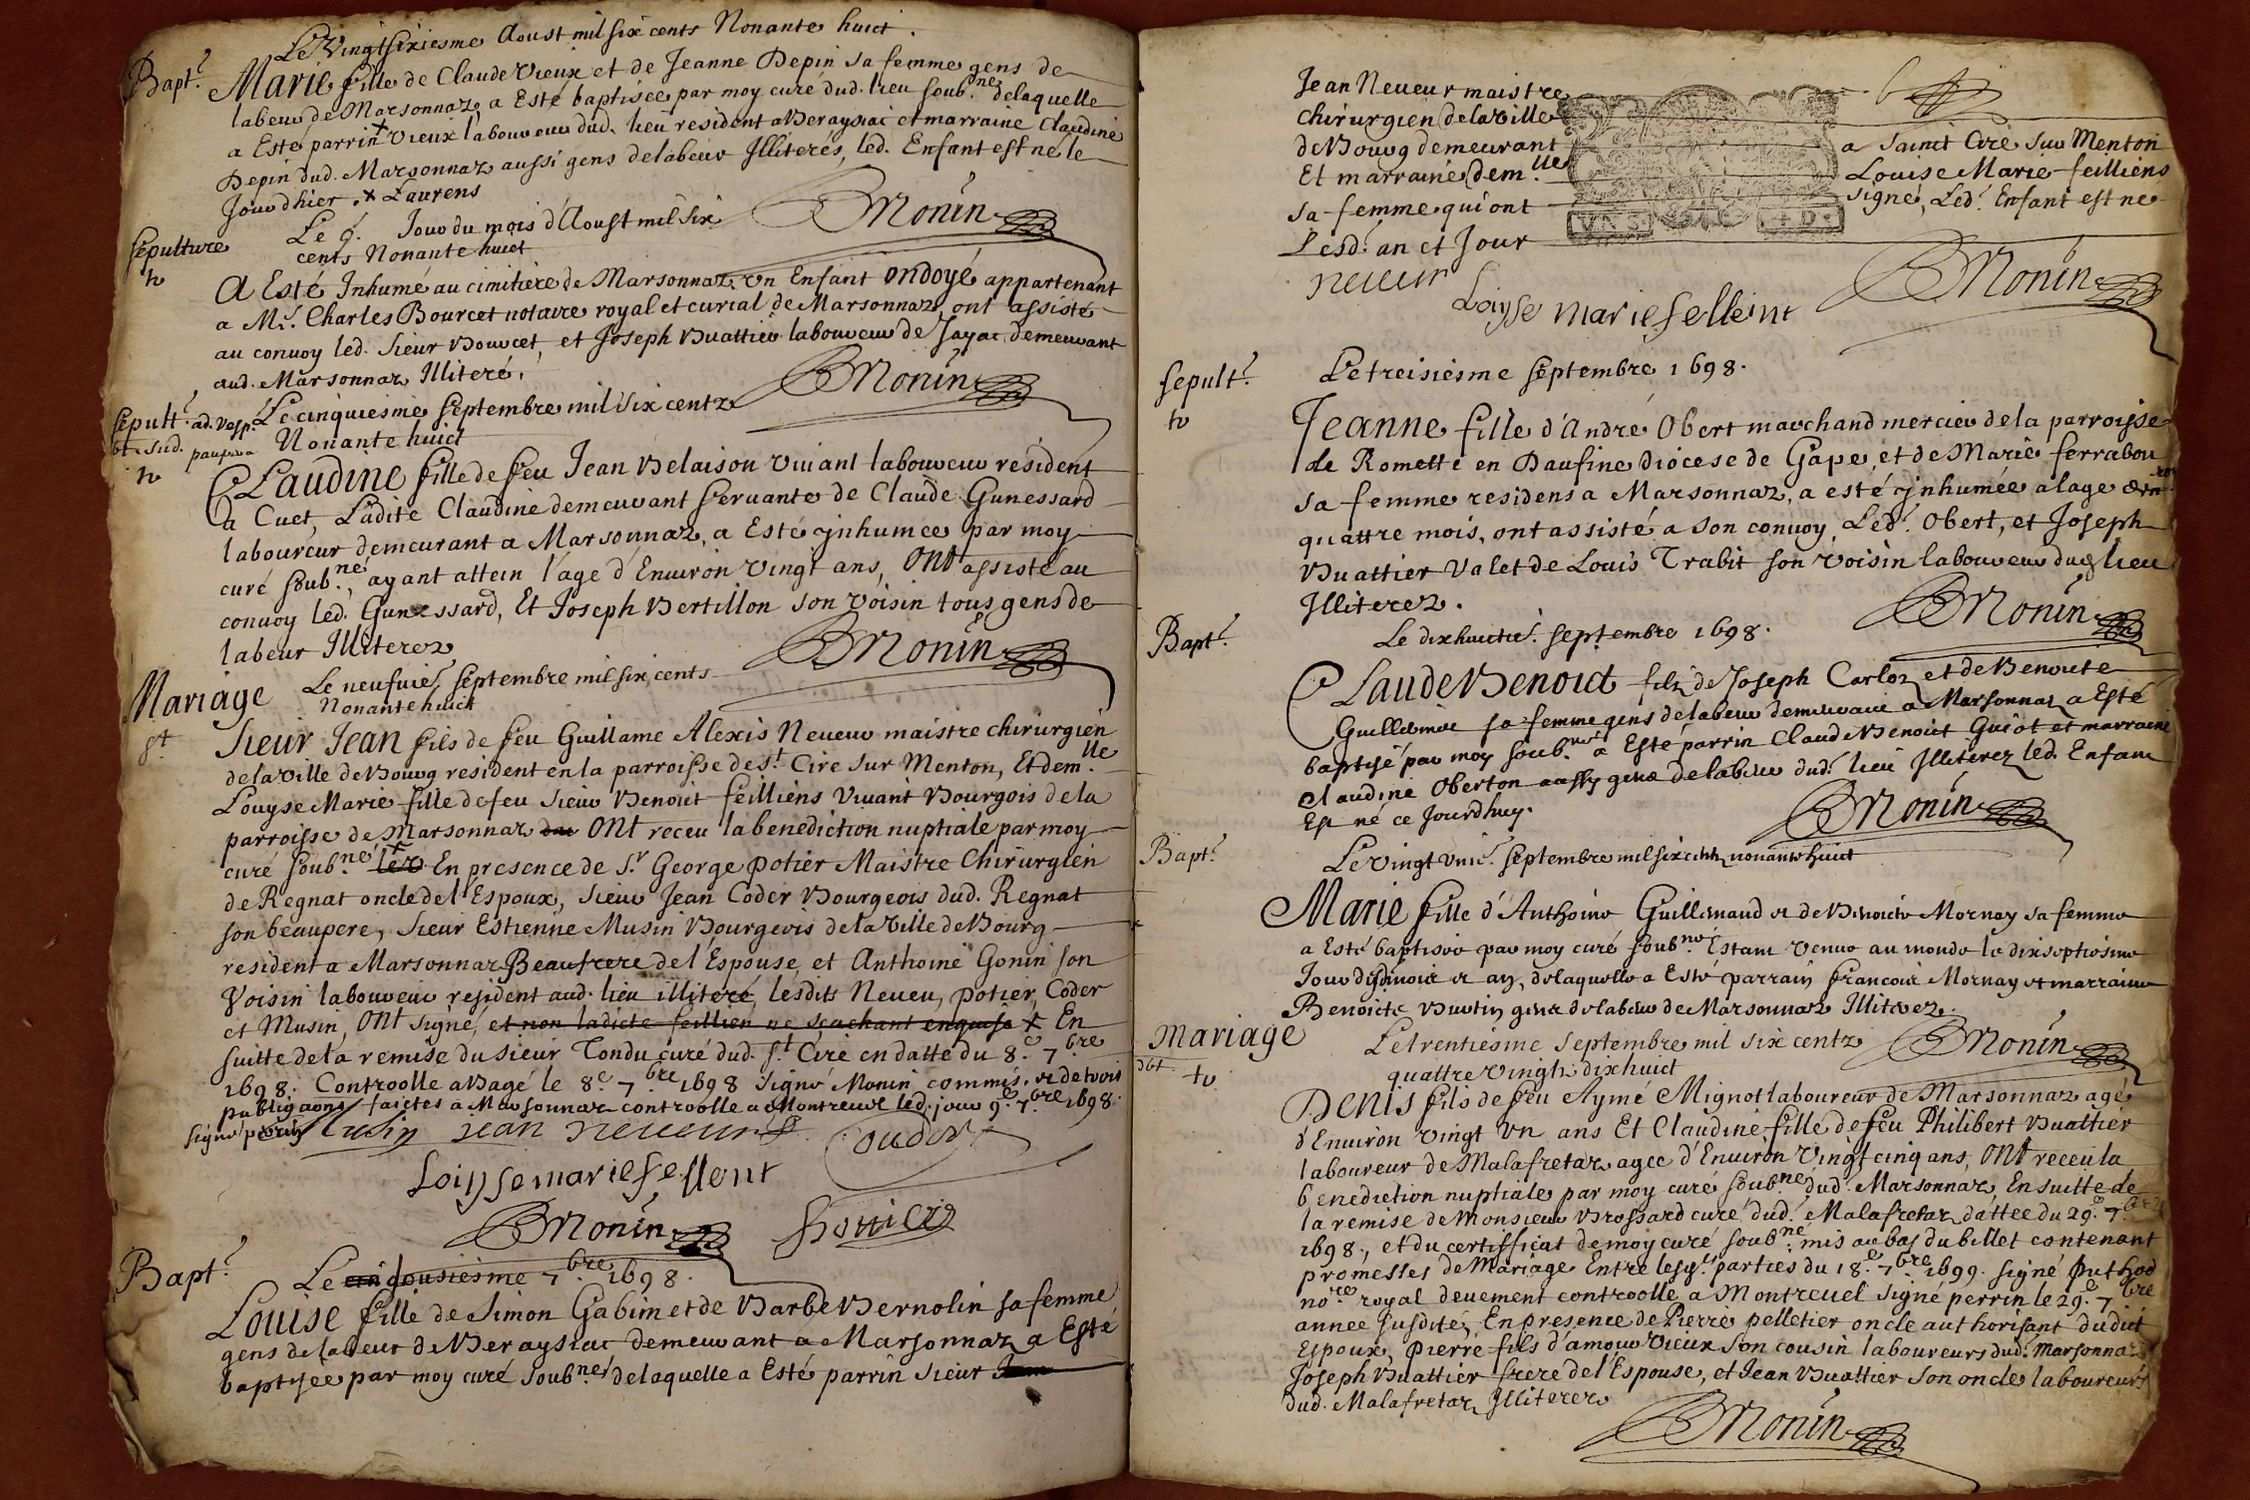 Le Vingtsixiesme Aoust mil six cents Nonante huict.
Bapt.e
Marie fille de Claude Vieux et de Jeanne Depin sa femme gens de
labeur de Marsonnaz, a Esté baptisée par moy curé dud. lieu soub.né delaquelle
a Esté parrin + Vieux laboureur dud. lieu resident a Beraysiac et marraine Claudine
Depin dud. Marsonnaz aussi gens delabeur Illiterés, led. Enfant est né le
Jour dhier. + Laurens
BMonin
sepulture
Le 9. Jour du mois d'Aoust mil six
cents Nonante huict
A Esté Inhumé au cimitiere de Marsonnaz Un Enfant ondoyé appartenant
a Mr. Charles Bourcet notaire royal et curial de Marsonnaz, ont assisté
au convoy led. sieur Bourcet, et Joseph Buattier laboureur de Jayac demeurant
aud. Marsonnaz Illiteré.
BMonin
sepult.e ad. vesp. Le cinquiesme septembre mil six centz
Nonante huict
Claudine fille de feu Jean Belaison vivant laboureur resident
a Cuet, Ladite Claudine demeurant servante de Claude Gunessard
laboureur demeurant a Marsonnaz, a Esté jnhumée par moy
curé soub.né, ayant attein l'age d'Environ Vingt ans, Ont assisté au
convoy led. Gunessard, Et Joseph Bertillon son voisin tous gens de
labeur Illiterez
BMonin
Mariage
Le neufvie. septembre mil six cents
Nonante huict
st
Sieur Jean fils de feu Guillame Alexis Neveur maistre chirurgien
de la Ville de Bourg resident en la parroisse de St. Cire sur Menton, Et dem.lle
Louyse Marie fille de feu sieur Benoict feilliens Vivant Bourgois de la
parroisse de Marsonnaz ONt receu la benediction nuptiale par moy
curé soub.né En presence de Sr. George potier Maistre Chirurgien
de Regnat oncle de l'Espoux, sieur Jean Coder Bourgeois dud. Regnat
son beaupere, sieur Estienne Musin Bourgeois de la Ville de Bourg
resident a Marsonnaz Beaufrere de l'Espouse, et Anthoine Gonin son
Voisin laboureur resident aud. lieu illiteré, lesdits Neveu, potier, Coder
et Musin, ONt signé, et non ladicte feillien ne scachant enquise + En
suitte de la remise du sieur Tondu curé dud. St. Ciré en datte du 8.e 7.bre
1698. Controolle a Bagé le 8e 7bre 1698 signé Monin commis, et de trois
publigaons faictes a Marsonnaz controolle a Montreuel led. jour 9.e 7.bre 1698.
signé perrin Musin Jean neueur Couder
Loiyse marie fellent
BMonin pottier
Bapt.e
Le dousiesme 7.bre 1698.
Louise fille de Simon Gabim et de Barbe Bernolin sa femme
gens de labeur de Beraysiac demeurant a Marsonnaz a Esté
baptisée par moy curé soub.né delaquelle a Esté parrin sieur Jean
Jean Neveur maistre
chirurgien de la ville
de Bourg demeurant a Sainct Cire sur Menton
Et marraine dem.lle Louise Marie feilliens
sa femme qui ont signé, Led. Enfant est né
Lesd. an et Jour
neueur
Loiyse marie felleint
BMonin
sepult.e
Le treisiesme septembre 1698.
Jeanne fille d'André Obert marchand mercier de la parroisse
de Romette en Daufine diocese de Gape, et de Marie ferrabou
sa femme residens a Marsonnaz, a esté jnhumée a lage
quattre mois, ont assisté a son convoy, Led. Obert, et Joseph
Buattier Valet de Louis Trabit son voisin laboureur dud. lieu
Illiterez.
BMonin
Bapt.e
Le dixhuictie. septembre 1698.
Claude Benoict filz de Joseph Carloz et de Benoicte
Guillemin sa femme gens de labeur demeurant a Marsonnaz a Esté
baptisé par moy soub.né a Esté parrin Claude Benoict Guiot et marraine
Claudine Oberton aussy gens de labeur dud. lieu Illiterez led. Enfant
Est né ce Jourdhuy.
BMonin
Bapt.e
Le Vingt unie. septembre mil six centz nonante huict
Marie fille d'Anthoine Guillemaud et de Benoicte Mornay sa femme
a Esté baptisée par moy curé soub.né Estant Venue au monde le dixseptiesme
Jour desd. mois et an, delaquelle a Esté parrain francois Mornay et marraine
Benoicte Buttin gens de labeur de Marsonnaz Illiterez.
BMonin
Mariage
Le trentiesme septembre mil six centz
quattre Vingtz dixhuict
Denis fils de feu Aymé Mignot laboureur de Marsonnaz agé
d'Environ vingt Un ans Et Claudine fille de feu Philibert Buattier
laboureur de Malafretaz agée d'Environ Vingt cinq ans, ONt receu la
benediction nuptiale par moy curé soub.né dud. Marsonnaz, En suitte de
la remise de Monsieur Brossard curé dud. Malafretaz dattée du 29.e 7.bre
1698., et du certifficat de moy curé soub.né mis au bas du billet contenant
promesses de Mariage Entre lesd. parties du 18.e 7.bre 1699. signé Puthod
no.re royal deuement controolle a Montreuel signé perrin le 29.e 7.bre
année susdite, En presence de Pierre pelletier oncle authorisant dudict
Espoux, Pierre fils d'amour Vieux son cousin laboureurs dud. Marsonnaz,
Joseph Buattier frere de l'Espouse, et Jean Buattier son oncle laboureurs
dud. Malafretaz Illiterez
BMonin